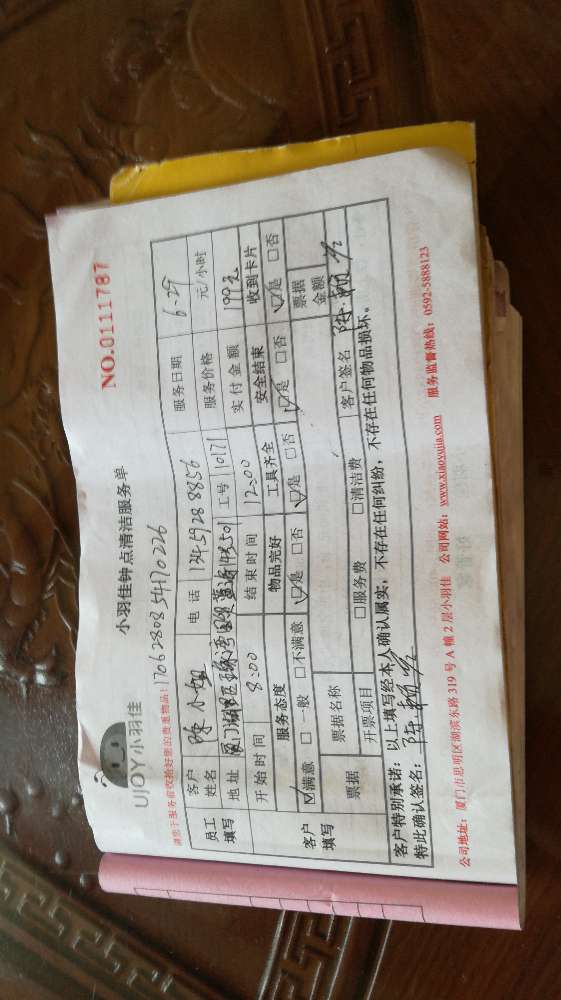 UJOY小羽佳
小羽佳钟点清洁服务单
NO.0111787
请您于服务前收拾好您的贵重物品!
1706280854170226
员工填写
客户姓名 陈小姐 电话 13459288856 服务日期 6.29
地址 厦门湖里区 工号 11017 服务价格 元/小时
开始时间 8:00 结束时间 12:00 实付金额
客户填写
服务态度 物品完好 工具齐全 安全结束 收到卡片
☑满意 □一般 □不满意 ☑是 □否 ☑是 □否 ☑是 □否 ☑是 □否
票据 票据名称 票据金额
开票项目 □服务费 □清洁费 客户签名
客户特别承诺：以上填写经本人确认属实，不存在任何纠纷，不存在任何物品损坏。
特此确认签名：
公司地址：厦门市思明区湖滨东路 319 号 A 幢 2 层小羽佳 公司网站：www.xiaoyujia.com 服务监督热线：0592-5888123